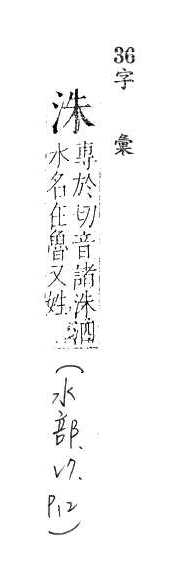 36字彙
洙
專於切音諸洙泗
水名在魯又姓
(水部.17.P12)